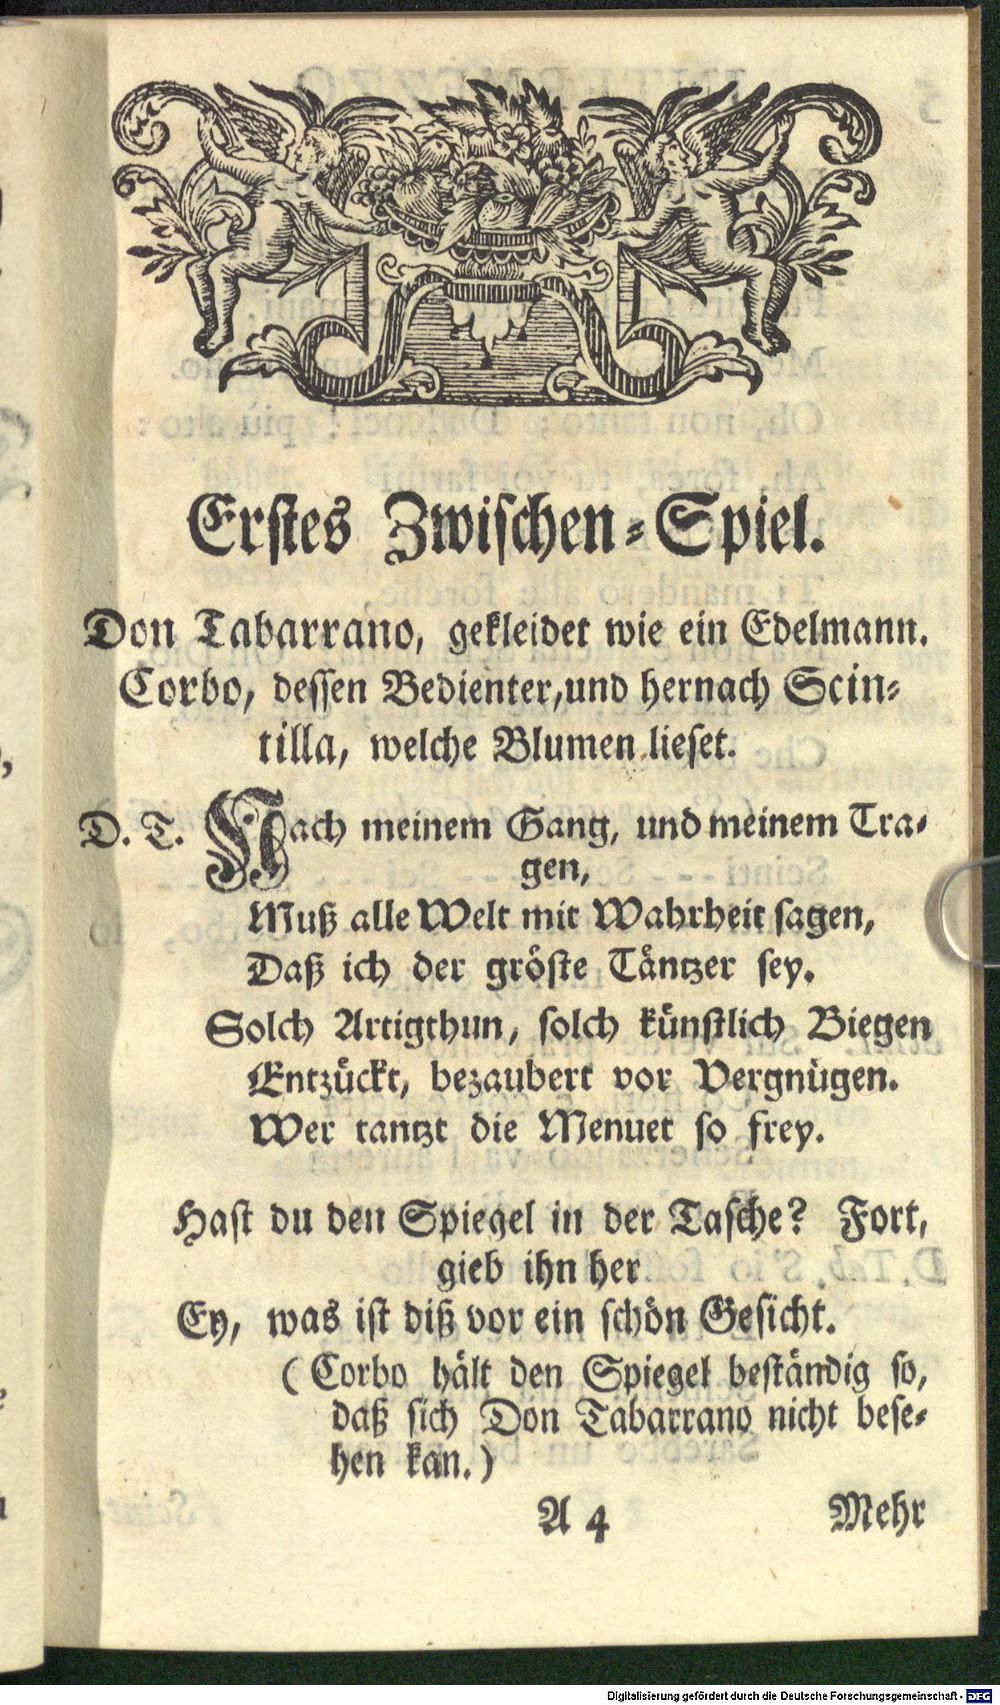 Erstes Zwischen-Spiel.
Don Tabarrano, gekleidet wie ein Edelmann.
Corbo, dessen Bedienter, und hernach Scin-
tilla, welche Blumen lieset.
D. T. Nach meinem Gang, und meinem Tra-
gen,
Muß alle Welt mit Wahrheit sagen,
Daß ich der gröste Täntzer sey.
Solch Artigthun, solch künstlich Biegen
Entzückt, bezaubert vor Vergnügen.
Wer tantzt die Menuet so frey.
Hast du den Spiegel in der Tasche? Fort,
gieb ihn her
Ey, was ist diß vor ein schön Gesicht.
(Corbo hält den Spiegel beständig so,
daß sich Don Tabarrano nicht bese-
hen kan.)
A 4 Mehr
Digitalisierung gefördert durch die Deutsche Forschungsgemeinschaft - DFG